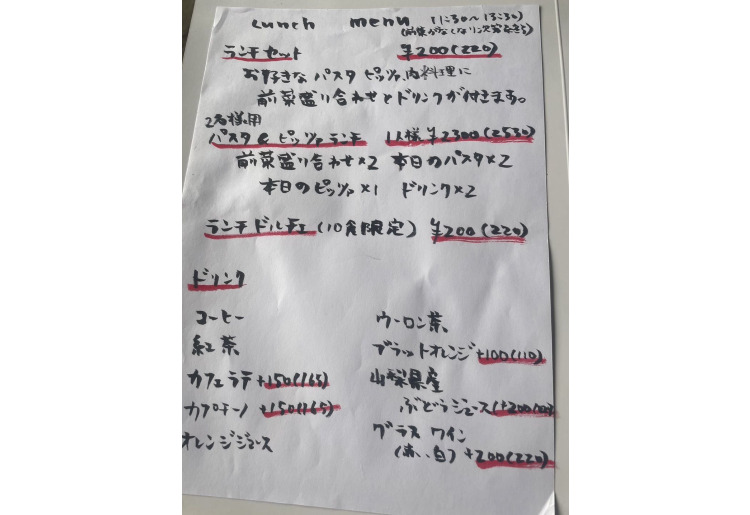 Lunch menu 11:30~13:30)
(前菜がなくなり次第
ランチセット ¥200(220)
お好きな パスタ ピッツァ、肉料理に
前菜盛り合わせとドリンクが付きます。
2名様用
パスタ & ピッツァランチ 1人様¥2300(2530)
前菜盛り合わせ×2 本日のパスタ×2
本日のピッツァ×1 ドリンク×2
ランチドルチェ(10食限定) ¥200(220)
ドリンク
コーヒー
紅茶
カフェラテ+150(165)
カプチーノ +150(165)
オレンジジュース
ウーロン茶
ブラットオレンジ+100(110)
山梨県産
ぶどうジュース(+200
グラス ワイン
(赤、白)+200(220)